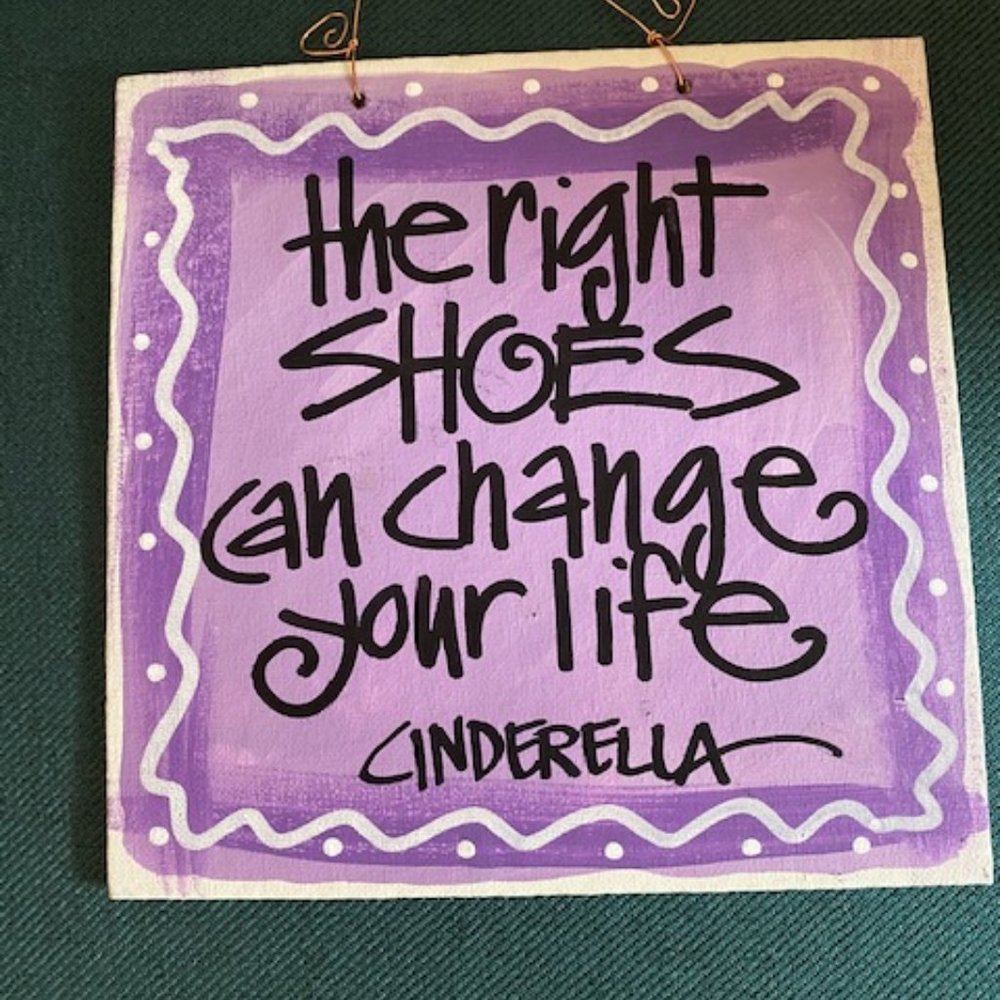 the right
SHOES
can change
your life
CINDERELLA